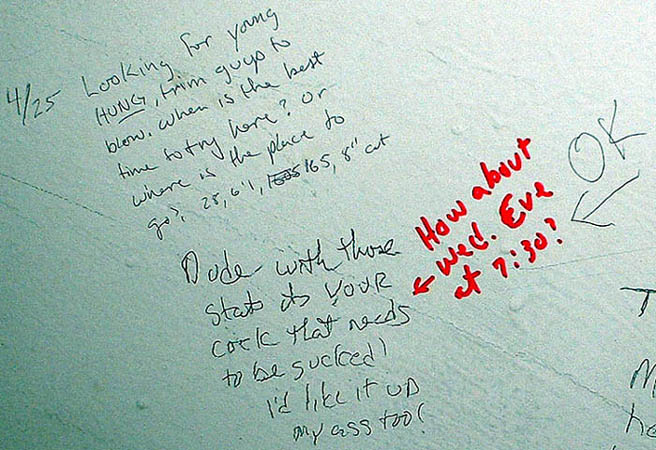 4/25 Looking for young
HUNG, trim guys to
blow. when is the best
time to try here? or
where is the place to
go? 25, 6'1, 165, 8" cut
Dude with those
stats its YOUR
cock that needs
to be sucked!
I'd like it up
my ass too!
How about
Wed. Eve
at 7:30?
OK
T
M
he